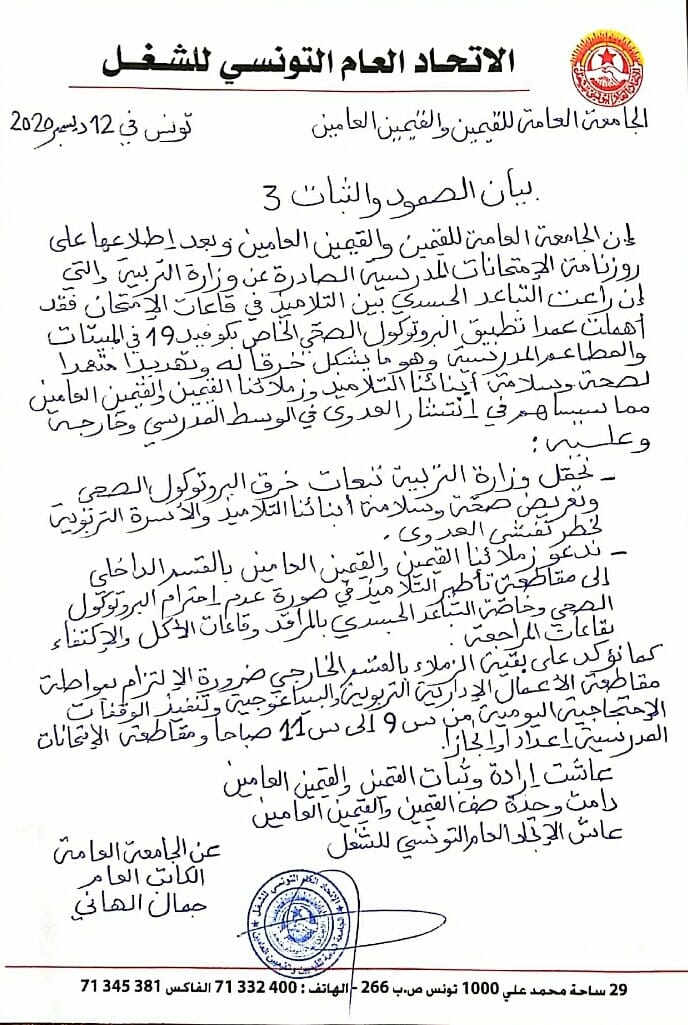 الاتحاد العام التونسي للشغل
الجامعة العامة للقيمين والقيمين العامين
تونس في 12 ديسمبر 2020
بيان الصمود والثبات 3
إن الجامعة العامة للقيمين والقيمين العامين وبعد إطلاعها على
روزنامة الإمتحانات المدرسية الصادرة عن وزارة التربية والتي
إن راعت التباعد الجسدي بين التلاميذ في قاعات الإمتحان فقد
أهملت عمدا تطبيق البروتوكول الصحي الخاص بكوفيد 19 في المبيتات
والمطاعم المدرسية وهو ما يشكل خرقا له وتهديدا متعمدا
لصحة وسلامة أبنائنا التلاميذ وزملائنا القيمين والقيمين العامين
مما سيساهم في إنتشار العدوى في الوسط المدرسي وخارجه
وعليه :
- نحمّل وزارة التربية تبعات خرق البروتوكول الصحي
وتعريض صحة وسلامة أبنائنا التلاميذ والأسرة التربوية
لخطر تفشي العدوى .
- ندعو زملائنا القيمين والقيمين العامين بالقسم الداخلي
إلى مقاطعة تأطير التلاميذ في صورة عدم إحترام البروتوكول
الصحي وخاصة التباعد الجسدي بالمراقد وقاعات الأكل والإكتفاء
بقاعات المراجعة .
كما نؤكد على بقية الزملاء بالقسم الخارجي ضرورة الإلتزام بمواصلة
مقاطعة الأعمال الإدارية التربوية والبيداغوجية وتنفيذ الوقفات
الإحتجاجية اليومية من س 9 إلى س 11 صباحا ومقاطعة الإمتحانات
المدرسية إعدادا وإنجازا.
عاشت إرادة وثبات القيمين والقيمين العامين
دامت وحدة صف القيمين والقيمين العامين
عاش الإتحاد العام التونسي للشغل
عن الجامعة العامة
الكاتب العام
جمال الهاني
29 ساحة محمد علي 1000 تونس ص.ب 266 - الهاتف : 400 332 71 الفاكس 381 345 71